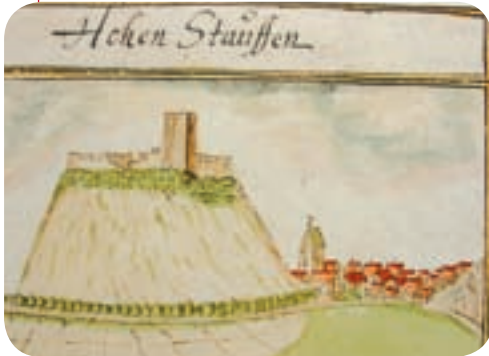 Hohen Stauffen